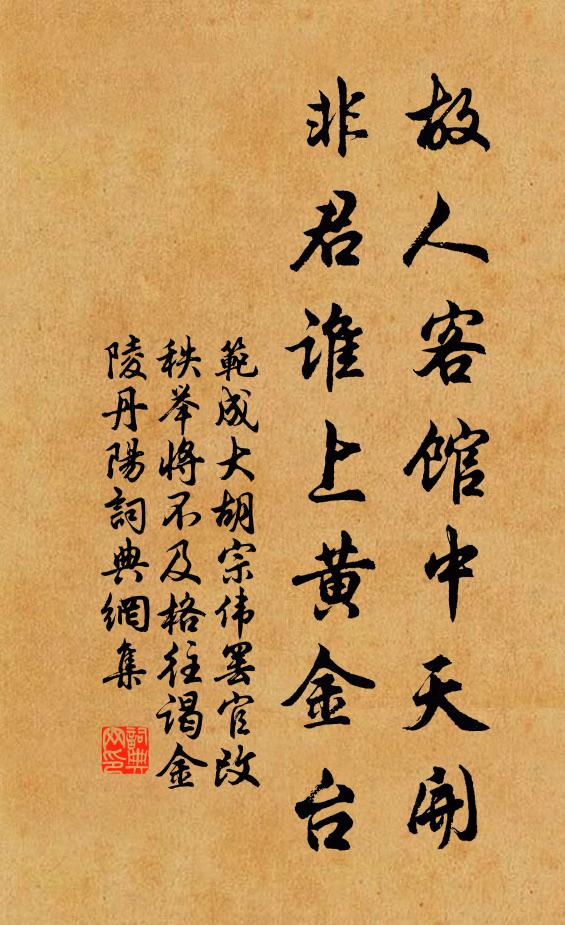 故人客馆中天開
非君谁上黄金台
範成大胡宗伟罢官改
秩举将不及格往谒金
陵丹陽詞典網集
詞典
网印